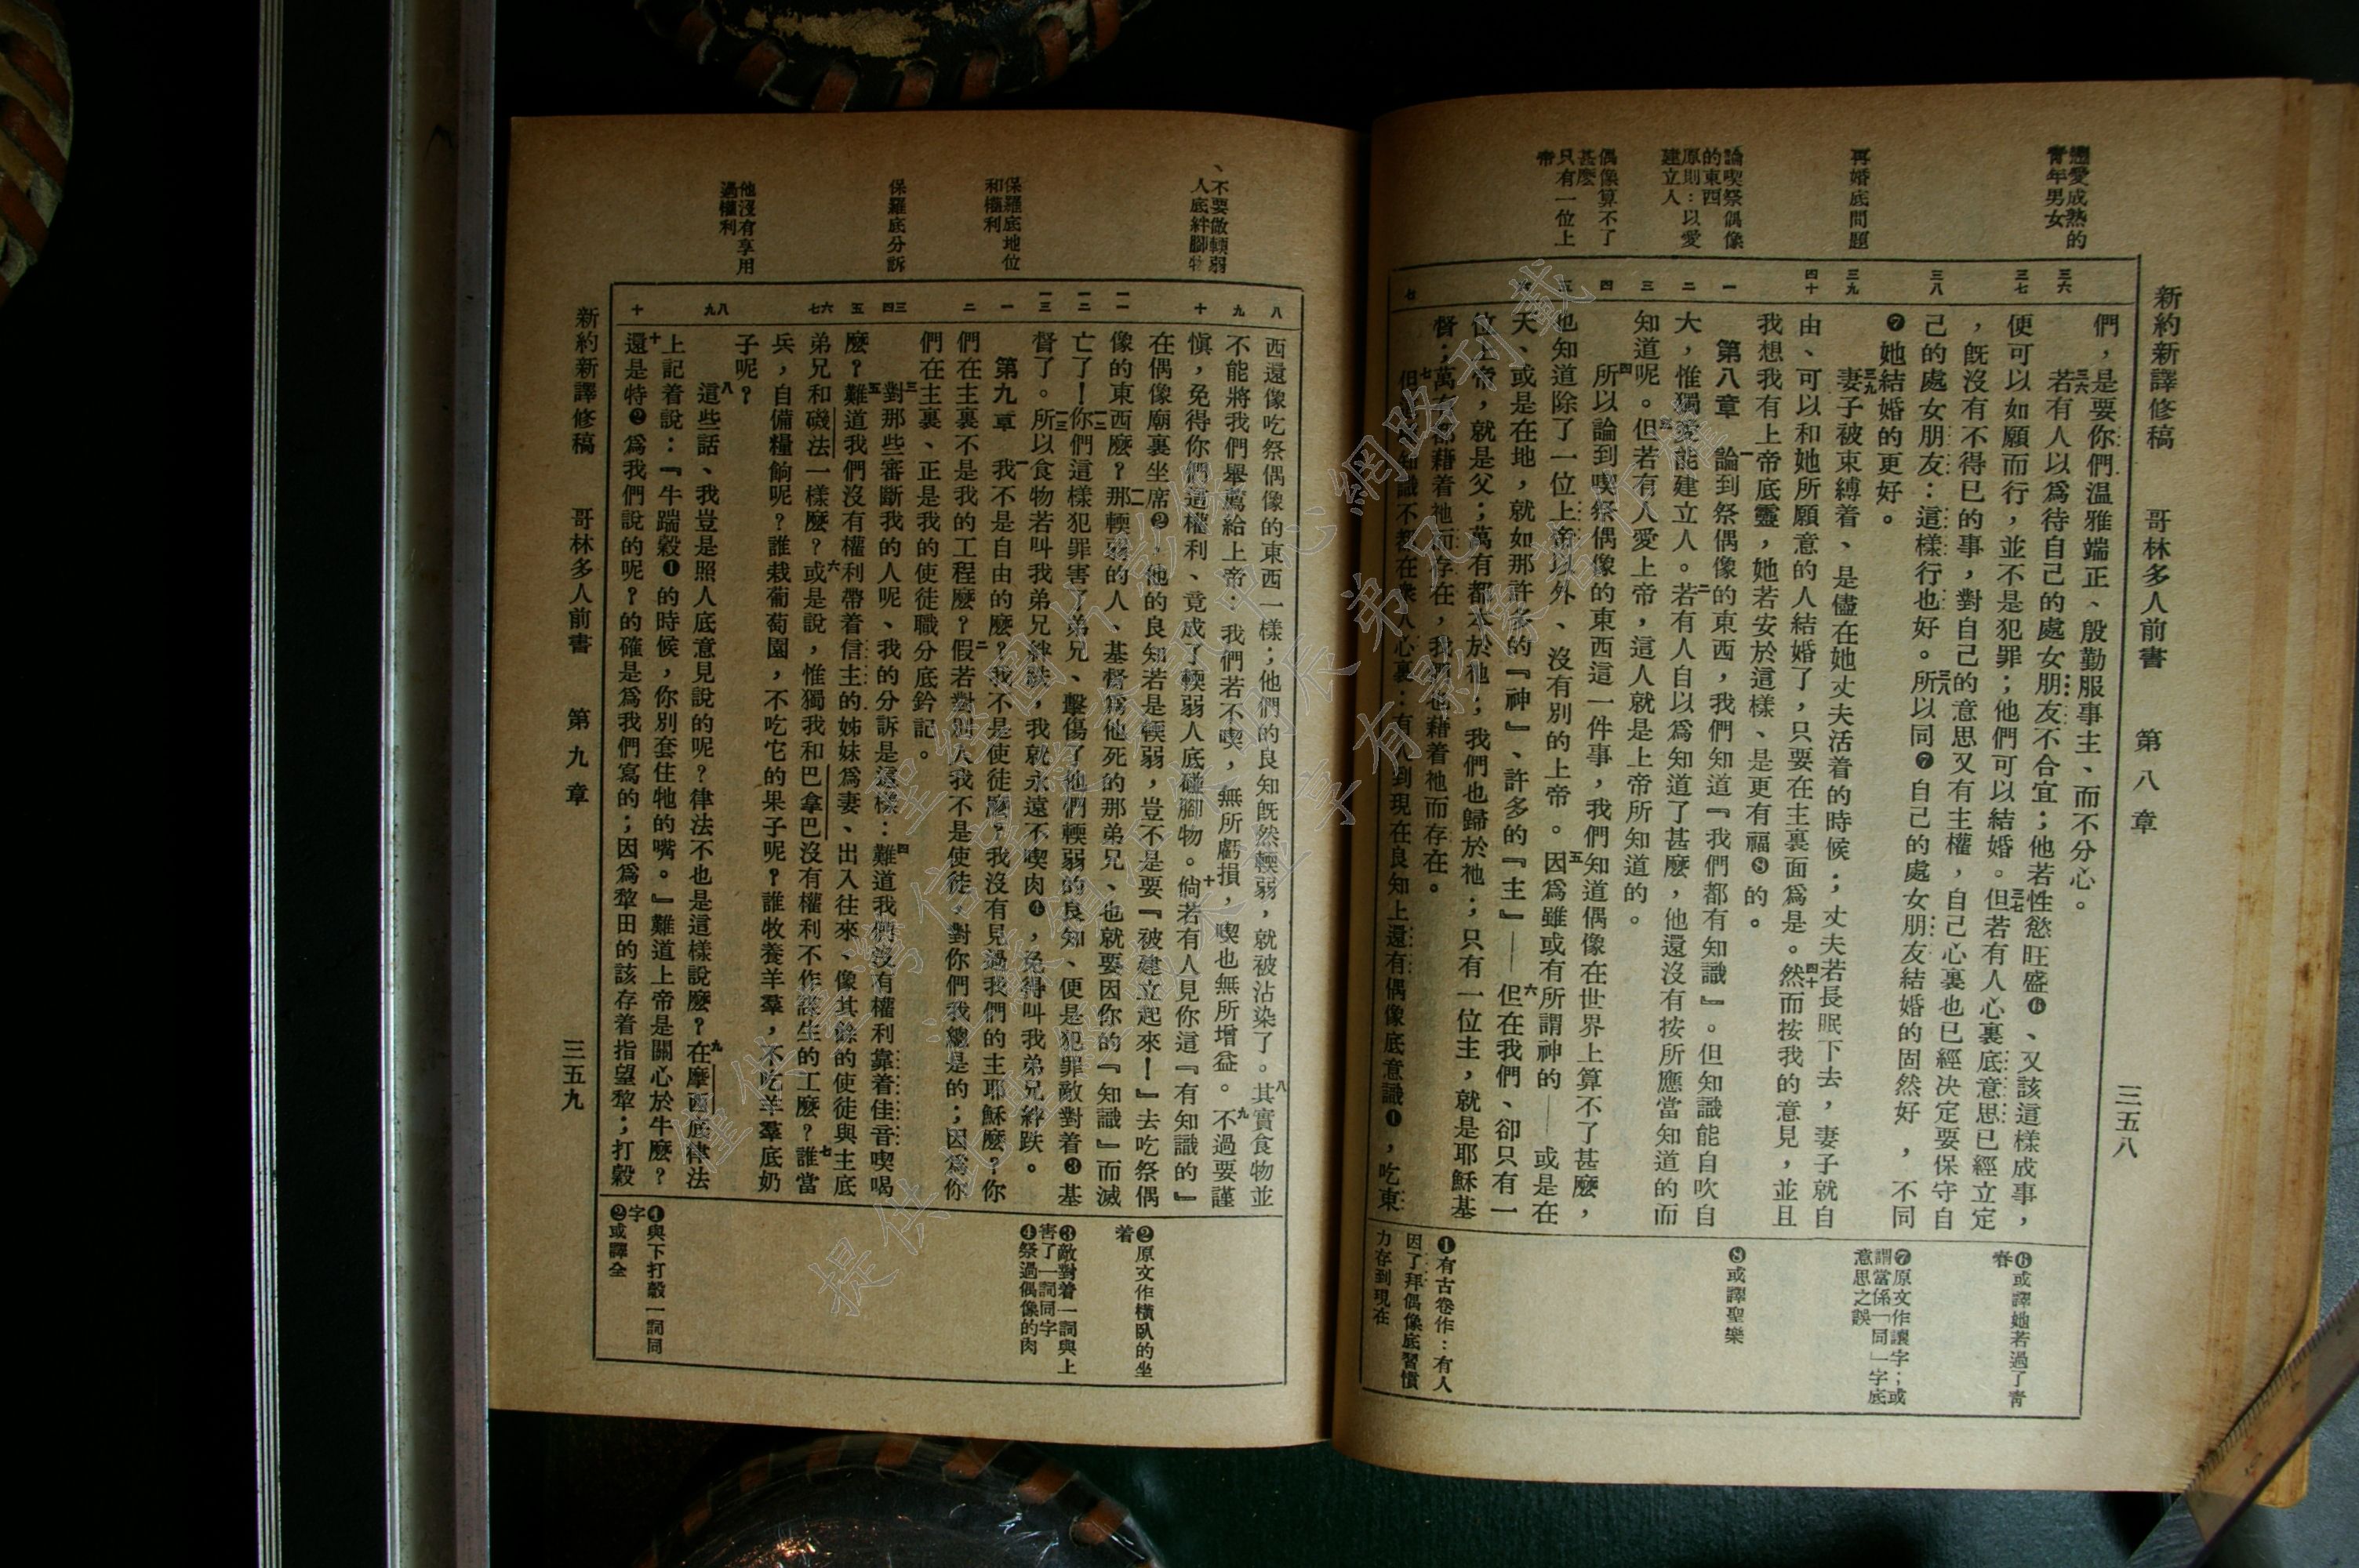 新約新譯修稿　哥林多人前書　第八章　三五八
戀愛成熟的
青年男女
再婚底問題
論喫祭偶像
的東西
原則：以愛
建立人
偶像算不了
甚麼
只有一位上
帝
三六
三七
三八
三九
四十
一
二
三
四
五
六
七
們，是要你們溫雅端正、殷勤服事主、而不分心。
三六若有人以爲待自己的處女朋友不合宜；他若性慾旺盛❻、又該這樣成事，
便可以如願而行，並不是犯罪；他們可以結婚。三七但若有人心裏底意思已經立定
，旣沒有不得已的事，對自己的意思又有主權，自己心裏也已經決定要保守自
己的處女朋友：這樣行也好。三八所以同❼自己的處女朋友結婚的固然好，不同
❼她結婚的更好。
三九妻子被束縛着、是儘在她丈夫活着的時候；丈夫若長眠下去，妻子就自
由、可以和她所願意的人結婚了，只要在主裏面爲是。四十然而按我的意見，並且
我想我有上帝底靈，她若安於這樣、是更有福❽的。
第八章　一論到祭偶像的東西，我們知道『我們都有知識』。但知識能自吹自
大，惟獨愛能建立人。二若有人自以爲知道了甚麼，他還沒有按所應當知道的而
知道呢。三但若有人愛上帝，這人就是上帝所知道的。
四所以論到喫祭偶像的東西這一件事，我們知道偶像在世界上算不了甚麼，
也知道除了一位上帝以外、沒有別的上帝。五因爲雖或有所謂神的——或是在
天、或是在地，就如那許多的『神』、許多的『主』——六但在我們、卻只有一
位上帝，就是父；萬有都本於祂；我們也歸於祂；只有一位主，就是耶穌基
督；萬有都藉着祂而存在，我們也藉着祂而存在。
七但是知識不都在衆人心裏：有人到現在良知上還有偶像底意識❶，吃東
❻或譯她若過了青
春
❼原文作讓字；或
謂當係「同」字底
意思之誤
❽或譯聖樂
❶有古卷作：有人
因了拜偶像底習慣
力存到現在
不要做輭弱
人底絆腳物
保羅底地位
和權利
保羅底分訴
他沒有享用
過權利
八
九
十
一一
一二
一三
一
二
三
四
五
六
七
八
九
十
西還像吃祭偶像的東西一樣；他們的良知旣然輭弱，就被沾染了。八其實食物並
不能將我們舉薦給上帝：我們若不喫，無所虧損，喫也無所增益。九不過要謹
慎，免得你們這權利、竟成了輭弱人底碰腳物。十倘若有人見你這『有知識的』
在偶像廟裏坐席❷，他的良知若是輭弱，豈不是要『被建立起來！』去吃祭偶
像的東西麼？一一那輭弱的人、基督爲他死的那弟兄、也就要因你的『知識』而滅
亡了！一二你們這樣犯罪害了弟兄、擊傷了他們輭弱的良知、便是犯罪敵對着❸基
督了。一三所以食物若叫我弟兄絆跌，我就永遠不喫肉❹，免得叫我弟兄絆跌。
第九章　一我不是自由的麼？我不是使徒麼？我沒有見過我們的主耶穌麼？你
們在主裏不是我的工程麼？二假若對別人我不是使徒，對你們我總是的；因爲你
們在主裏、正是我的使徒職分底鈐記。
三對那些審斷我的人呢、我的分訴是這樣：四難道我們沒有權利靠着佳音喫喝
麼？五難道我們沒有權利帶着信主的姊妹爲妻、出入往來、像其餘的使徒與主底
弟兄和磯法一樣麼？六或是說，惟獨我和巴拿巴沒有權利不作謀生的工麼？七誰當
兵，自備糧餉呢？誰栽葡萄園，不吃它的果子呢？誰牧養羊羣，不吃羊羣底奶
子呢？
八這些話、我豈是照人底意見說的呢？律法不也是這樣說麼？九在摩西底律法
上記着說：『牛踹穀❶的時候，你別套住牠的嘴。』難道上帝是關心於牛麼？
十還是特❷爲我們說的呢？的確是爲我們寫的；因爲犂田的該存着指望犂；打穀
❷原文作橫臥的坐
着
❸敵對着一詞與上
害了一詞同字
❹祭過偶像的肉
❶與下打穀一詞同
字
❷或譯全
新約新譯修稿　哥林多人前書　第九章　三五九